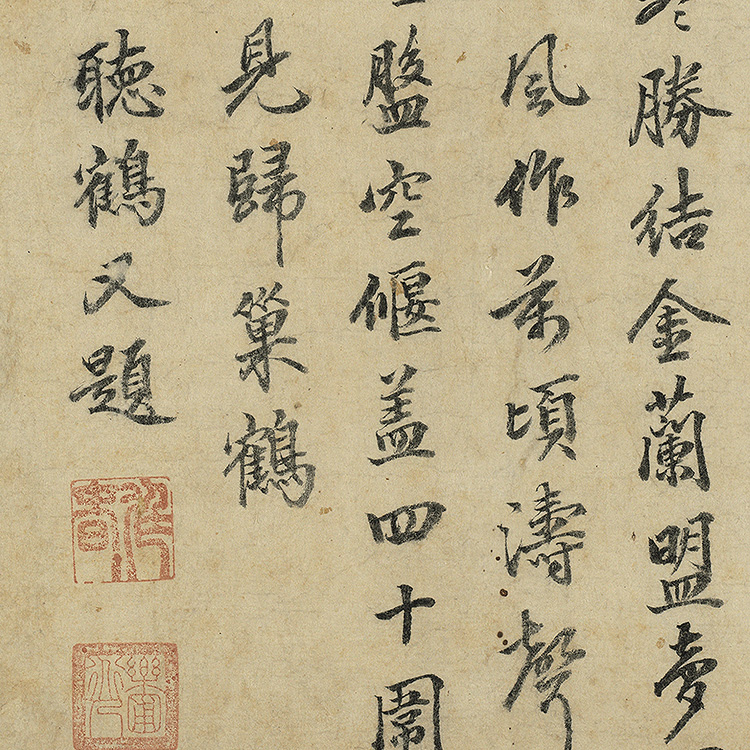 勝結金蘭盟夢
風作万頃濤聲
盤空偃盖四十圍
見歸巢鶴
聽鶴又題